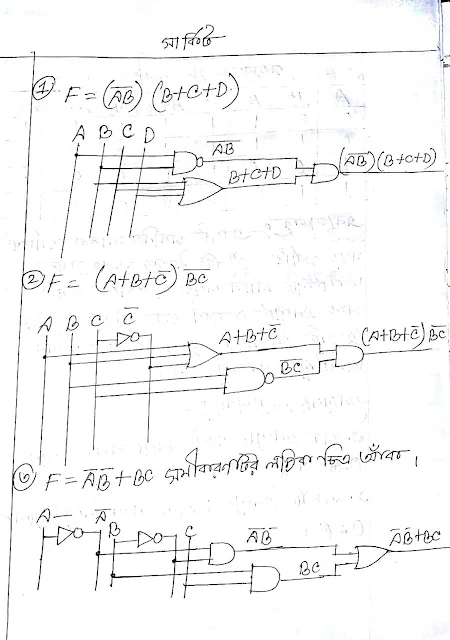 সার্কিট
① F = (A̅B̅) (B+C+D)
A B C D
A̅B̅
B+C+D
(A̅B̅)(B+C+D)
② F = (A+B+C̅) B̅C̅
A B C C̅
A+B+C̅
B̅C̅
(A+B+C̅) B̅C̅
③ F = A̅B̅ + BC সমীকরণটির লজিক চিত্র আঁক।
A A̅ B C
A̅B̅
BC
A̅B̅+BC